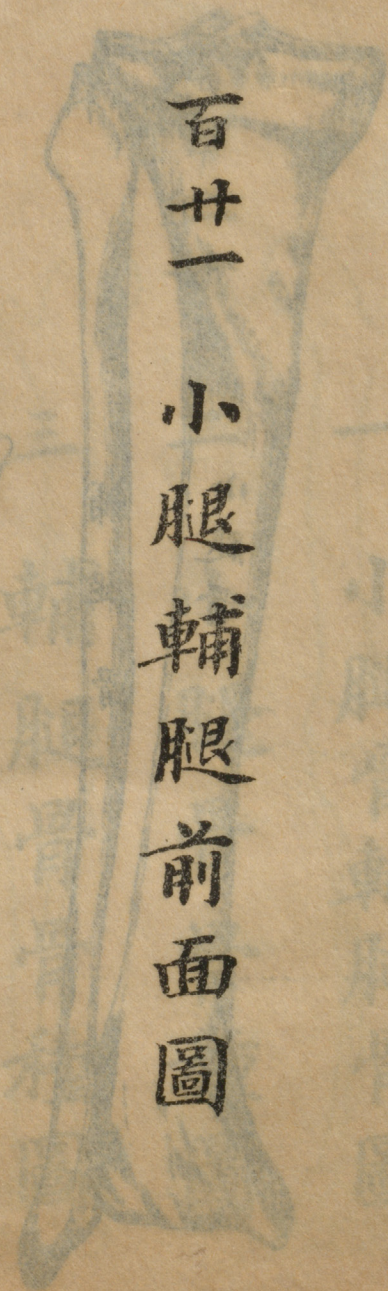 百廿一 小腿輔腿前面圖